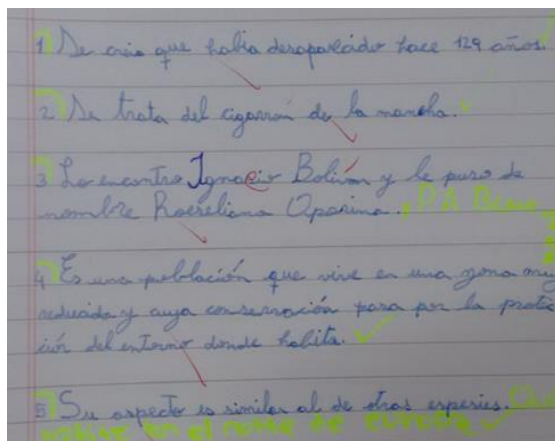 1 Se creía que había desaparecido hace 129 años.
2 Se trata del cigarrón de la mancha.
3 Lo encontro Ignacio Bolívar y le puso de
nombre Roeseliana Oporina. P.A Bene
4 Es una población que vive en una zona muy
reducida y cuya conservación pasa por la protec
ción del entorno donde habita.
5 Su aspecto es similar al de otras especies.
en el